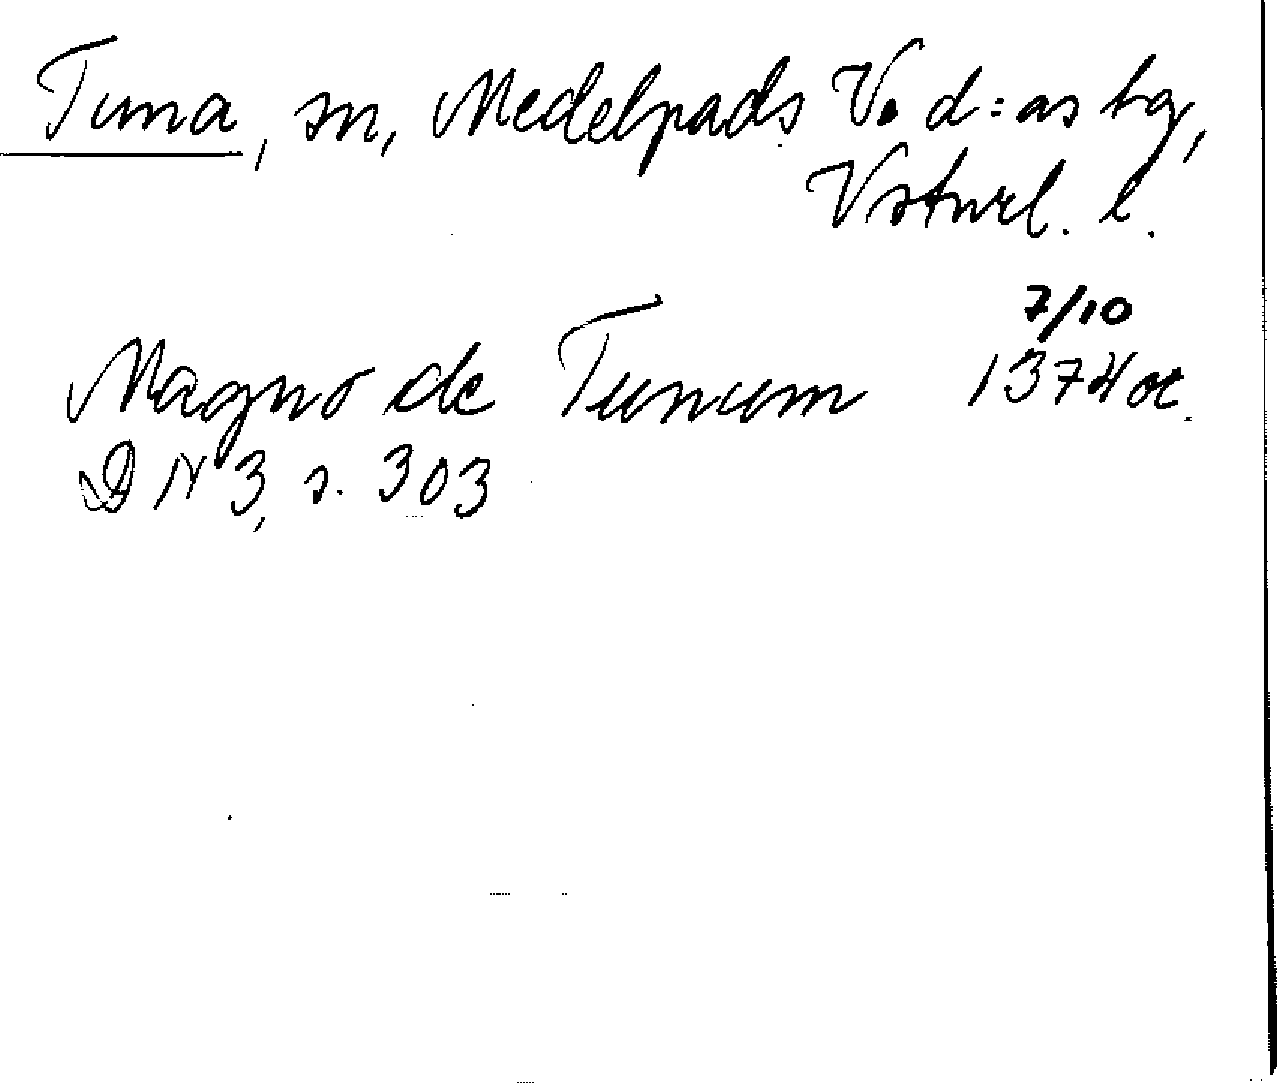 Tuna, sn, Medelpads V. d:as tg,
Vstnrl. l.
7/10
Magno de Tunum 1374 or.
DN 3, s. 303